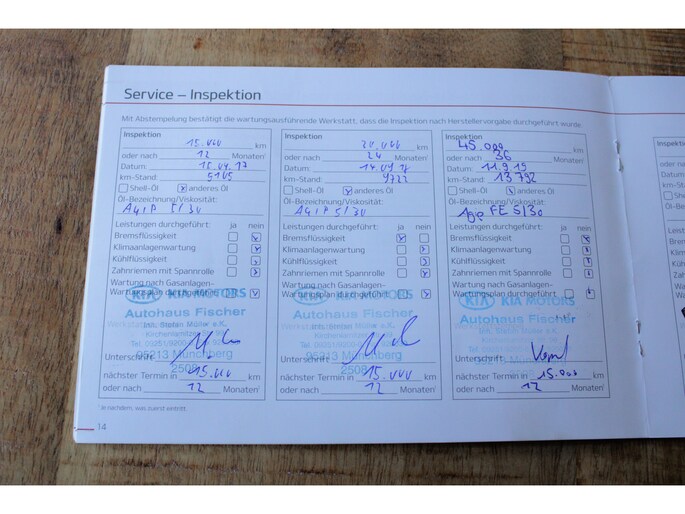 Service – Inspektion
Mit Abstempelung bestätigt die wartungsausführende Werkstatt, dass die Inspektion nach Herstellervorgabe durchgeführt wurde.
Inspektion
15.000 km
oder nach 12 Monaten¹
Datum:
km-Stand: 5105
Shell-Öl x anderes Öl
Öl-Bezeichnung/Viskosität:
Agip 5/30
Leistungen durchgeführt: ja nein
Bremsflüssigkeit
Klimaanlagenwartung
Kühlflüssigkeit
Zahnriemen mit Spannrolle
Wartung nach Gasanlagen-
Wartungsplan durchgeführt
KIA KIA MOTORS
Autohaus Fischer
Inh. Stefan Müller e.K.
95213 Münchberg
Unterschrift
2508
nächster Termin in 15.000 km
oder nach 12 Monaten¹
Inspektion
km
oder nach 24 Monaten¹
Datum:
km-Stand: 9722
Shell-Öl x anderes Öl
Öl-Bezeichnung/Viskosität:
Agip 5/30
Leistungen durchgeführt: ja nein
Bremsflüssigkeit
Klimaanlagenwartung
Kühlflüssigkeit
Zahnriemen mit Spannrolle
Wartung nach Gasanlagen-
Wartungsplan durchgeführt
KIA MOTORS
Autohaus Fischer
Inh. Stefan Müller e.K.
95213 Münchberg
Unterschrift
2508
nächster Termin in 15.000 km
oder nach 12 Monaten¹
Inspektion
45.000 km
oder nach 36 Monaten¹
Datum: 11.9.19
km-Stand: 13792
Shell-Öl x anderes Öl
Öl-Bezeichnung/Viskosität:
FE 5/30
Leistungen durchgeführt: ja nein
Bremsflüssigkeit
Klimaanlagenwartung
Kühlflüssigkeit
Zahnriemen mit Spannrolle
Wartung nach Gasanlagen-
Wartungsplan durchgeführt
KIA KIA MOTORS
Autohaus Fischer
Inh. Stefan Müller e.K.
95213 Münchberg
Unterschrift
nächster Termin in 15.000 km
oder nach 12 Monaten¹
¹ Je nachdem, was zuerst eintritt.
14